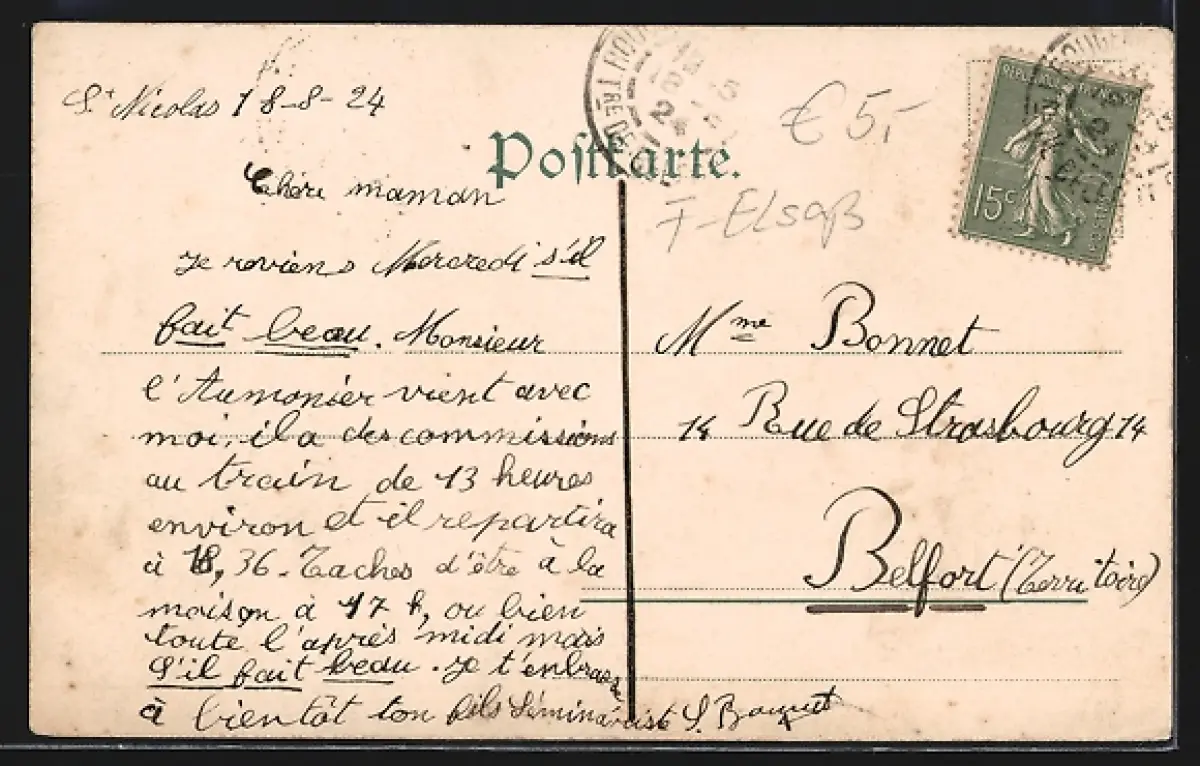 St Nicolas 18-8-24
Chère maman
Je reviens Mercredi s'il
fait beau. Monsieur
l'Aumonier vient avec
moi, il a des commissions
au train de 13 heures
environ et il repartira
à 18,36. Taches d'être à la
maison à 17 h, ou bien
toute l'après midi mais
s'il fait beau. Je t'embrasse
à bientôt ton fils Séminariste
Postkarte.
€ 5,-
F-Elsaß
REPUBLIQUE FRANÇAISE
15c
POSTES
Mme Bonnet
14 Rue de Strasbourg 14
Belfort (Territoire)